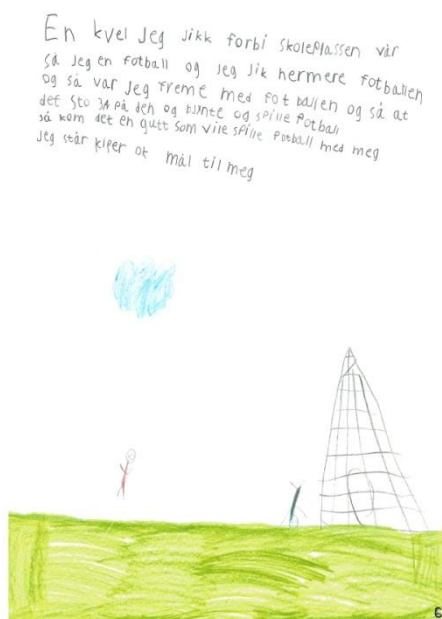 En kvel jeg jikk forbi skoleplassen vår
så jeg en fotball og jeg jik hermere fotballen
og så var jeg freme med fotballen og så at
det sto 3A på den og bjnte og spille fotball
så kom det en gutt som vile spille fotball med meg
jeg står kiper og mål til meg
6